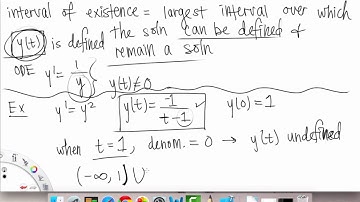 interval of existence = largest interval over which
y(t) is defined the soln can be defined &
remain a soln
ODE y' = 1/y y(t) ≠ 0
Ex y' = y² y(t) = -1/(t-1) ✓ y(0) = 1
when t = 1, denom. = 0 → y(t) undefined
(-∞, 1) ∪